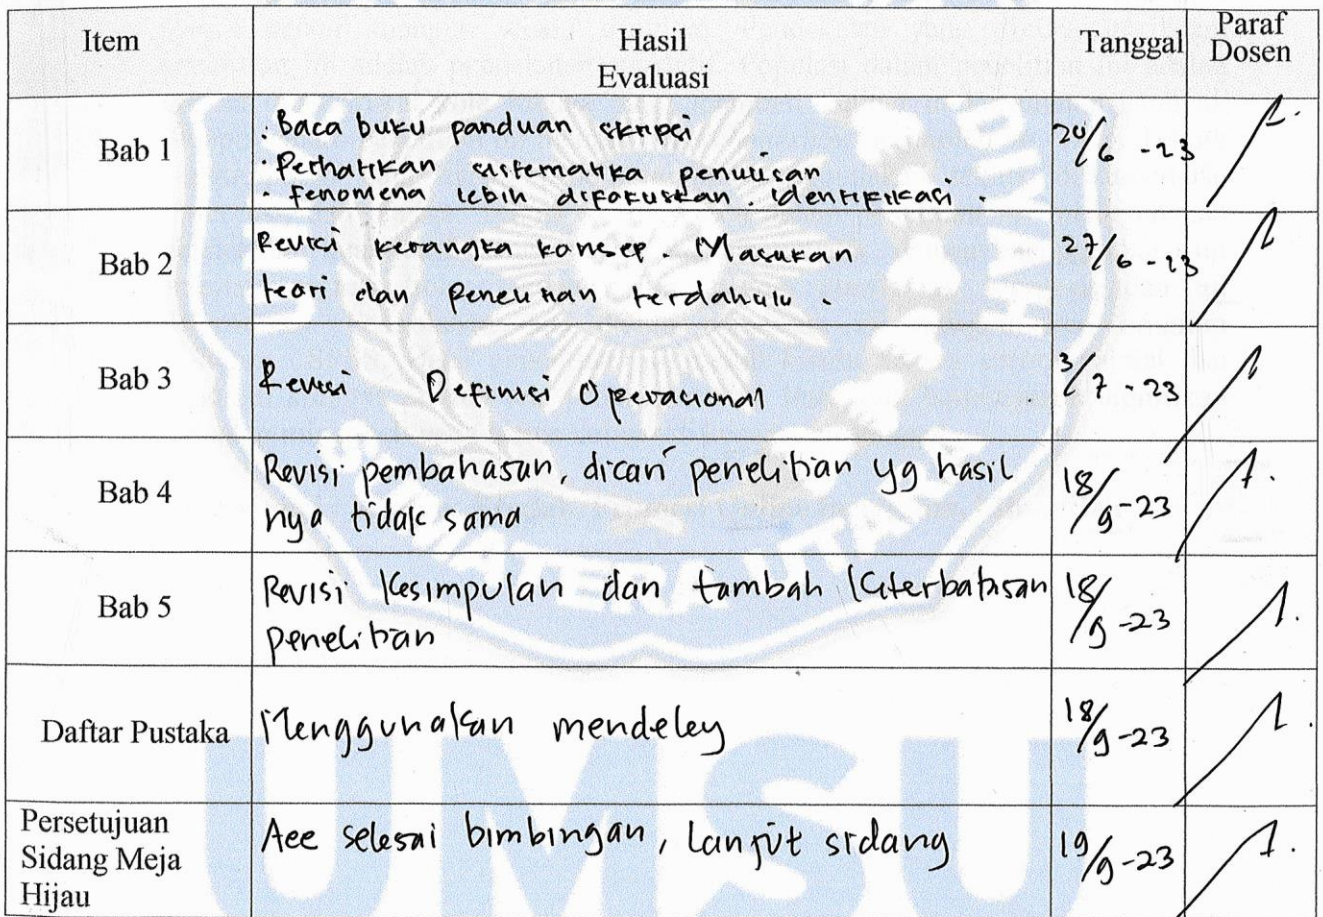 Item Hasil Evaluasi Tanggal Paraf Dosen
Bab 1 . Baca buku panduan skripsi 20/6 - 23
. Perhatikan sistematika penulisan
. fenomena lebih difokuskan . identifikasi .
Bab 2 Revisi kerangka konsep . Masukan 27/6 - 23
teori dan penelitian terdahulu .
Bab 3 Revisi Definisi Operasional 3/7 - 23
Bab 4 Revisi pembahasan, dicari penelitian yg hasil 18/9-23
nya tidak sama
Bab 5 Revisi kesimpulan dan tambah keterbatasan 18/9-23
penelitian
Daftar Pustaka Menggunakan mendeley 18/9-23
Persetujuan Sidang Meja Hijau Acc selesai bimbingan, lanjut sidang 19/9-23
SUMATERA UTARA
UMSU